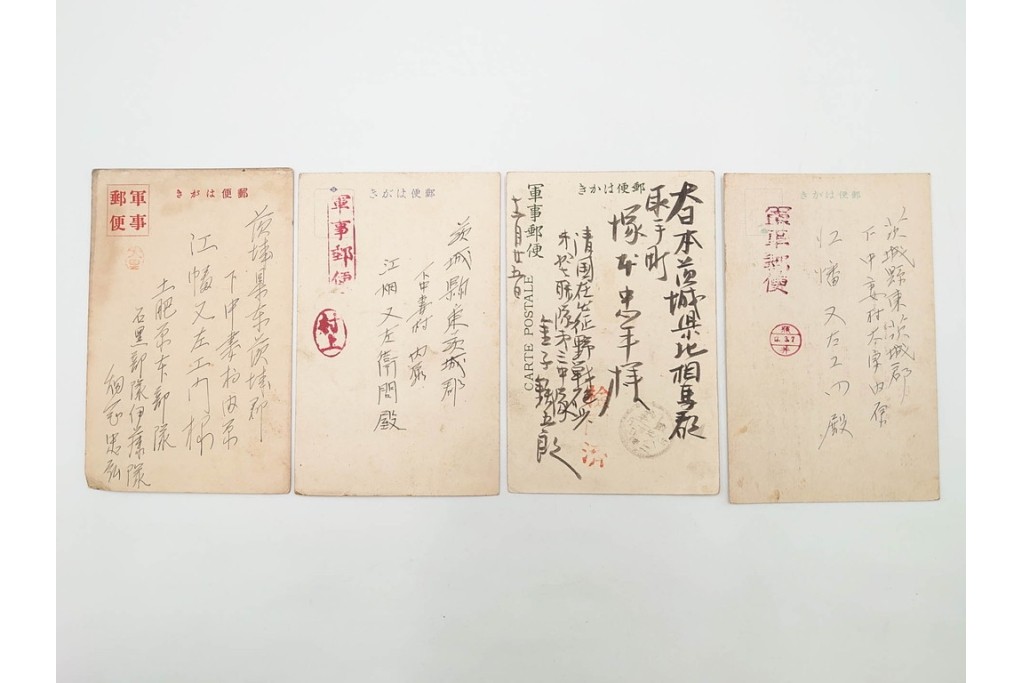 きがは便郵
軍事
郵便
茨城県東茨城郡
下中妻村内原
江幡又左エ門様
土肥原本部隊
石黒部隊伊藤隊
きかは便郵
軍事郵便
村上
茨城縣東茨城郡
下中妻村内原
江幡又左衛門殿
きかは便郵
軍事郵便
CARTE POSTALE
大日本茨城県北相馬郡
取手町
塚本忠平様
清国在出征野戦砲兵
第三中隊
金子
十二月廿五日
済
きかは便郵
軍事郵便
茨城縣東茨城郡
下中妻村大字内原
江幡又左エ門殿